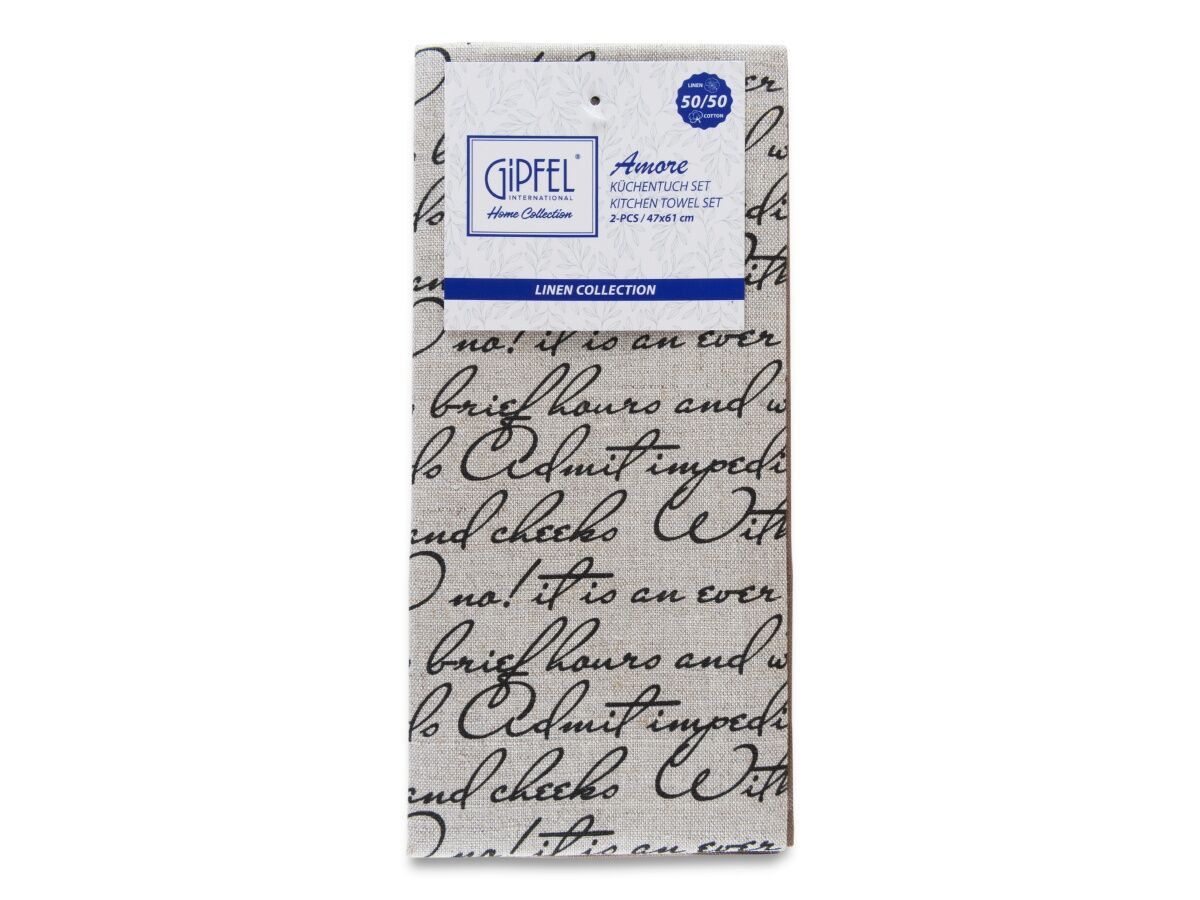 er
LINEN
50/50
COTTON
GiPFEL®
INTERNATIONAL
Home Collection
Amore
KÜCHENTUCH SET
KITCHEN TOWEL SET
2-PCS / 47x61 cm
LINEN COLLECTION
O no! it is an ever
brief hours and w
ls Admit impedi
and cheeks With
O no! it is an ever
brief hours and w
ls Admit impedi
and cheeks With
O no! it is an ever